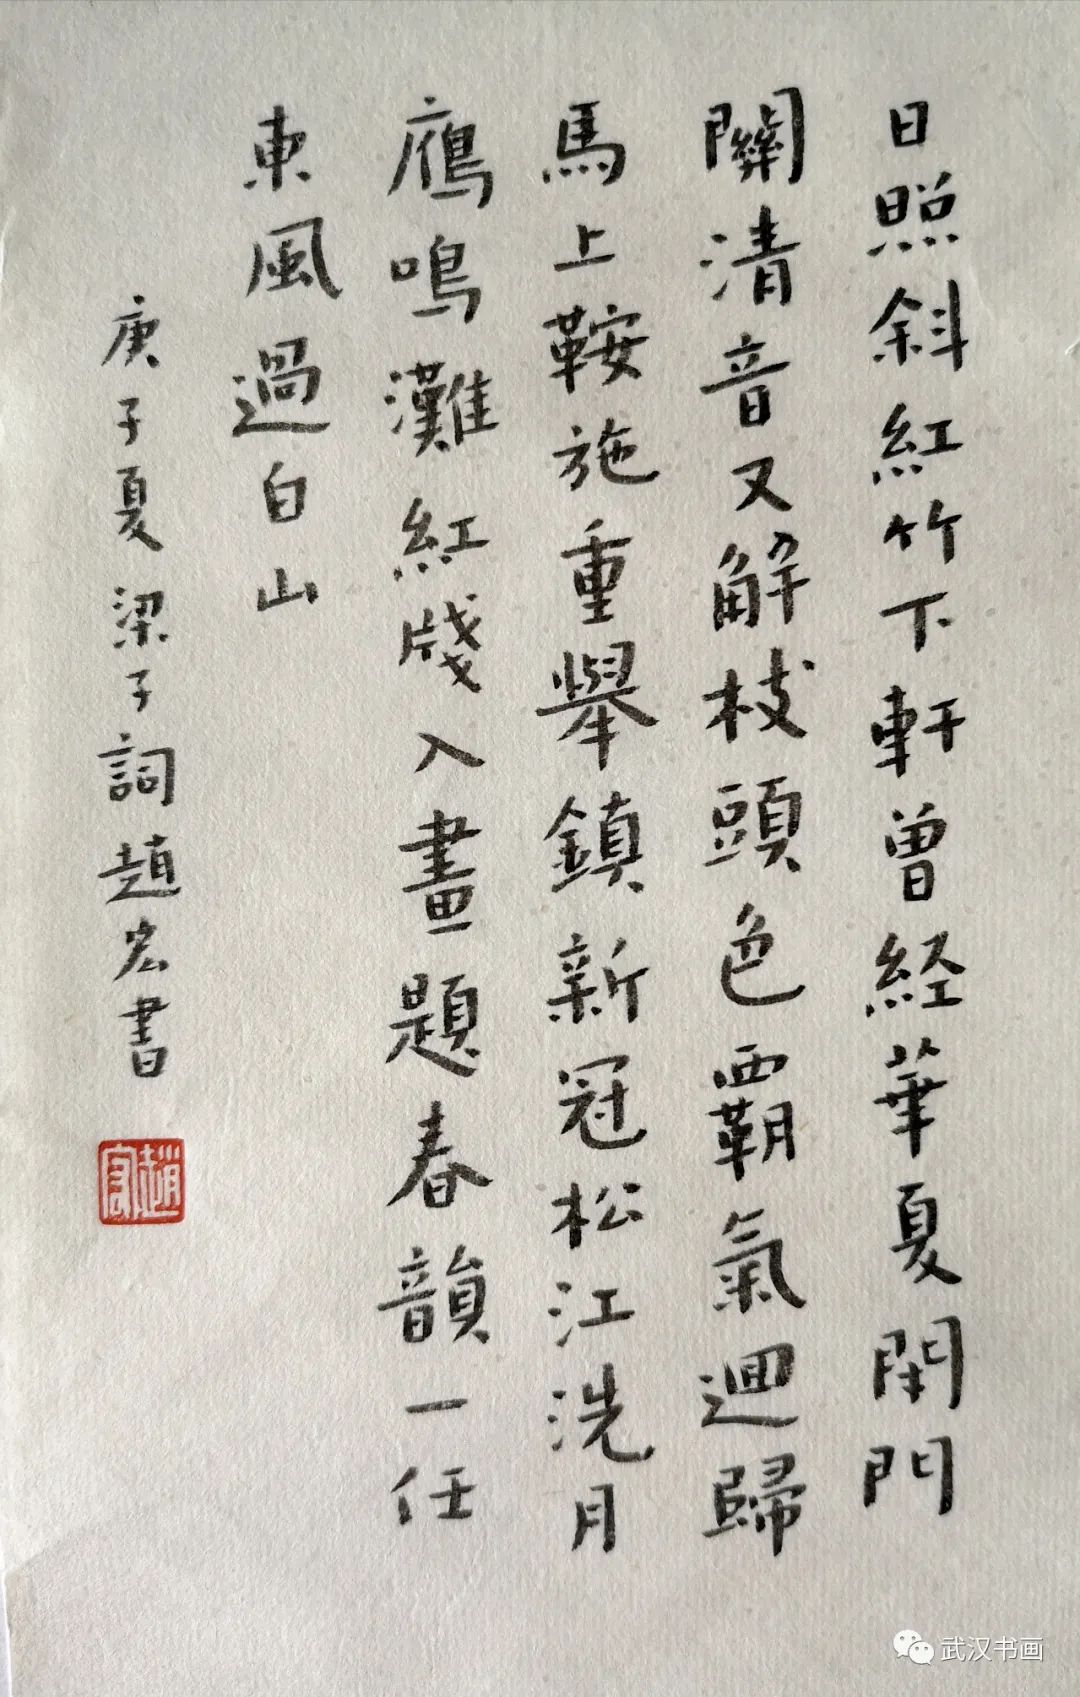 日照斜紅竹下軒曾經華夏閉門
關清音又解枝頭色霸氣迴歸
馬上鞍施重舉鎮新冠松江洗月
鴈鳴灘紅牋入畫題春韻一任
東風過白山
庚子夏梁子詞趙宏書
趙宏
武汉书画